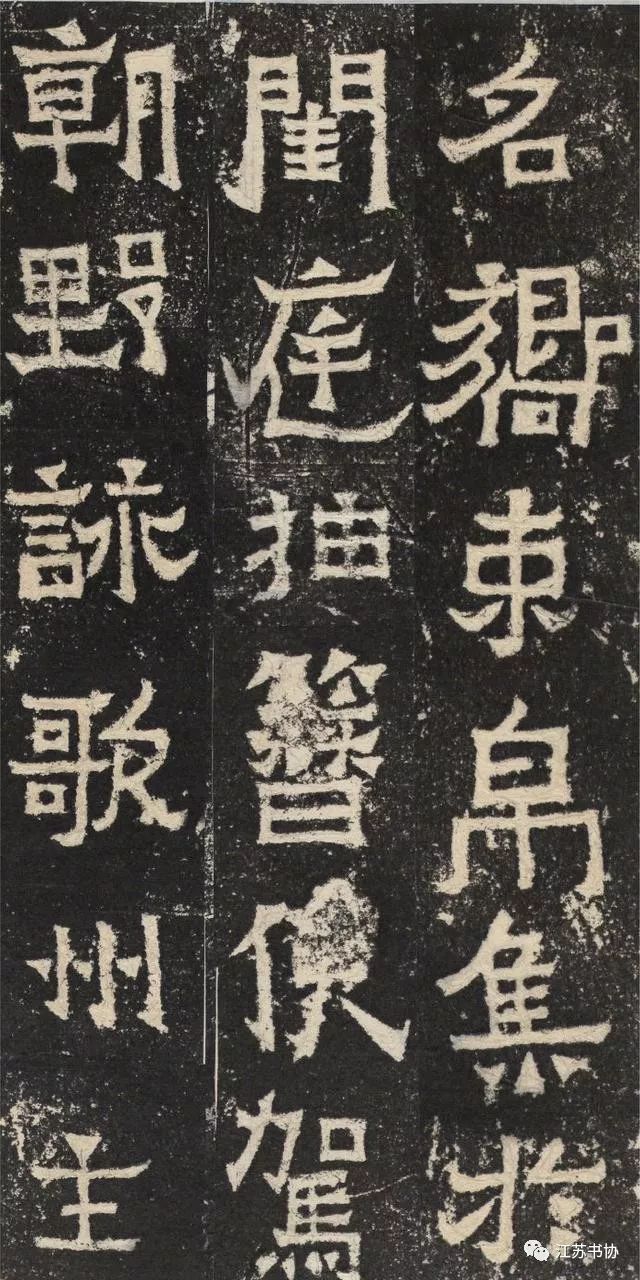 名嚮束帛集於
閨庭抽簪俟駕
朝野詠歌州主
江苏书协